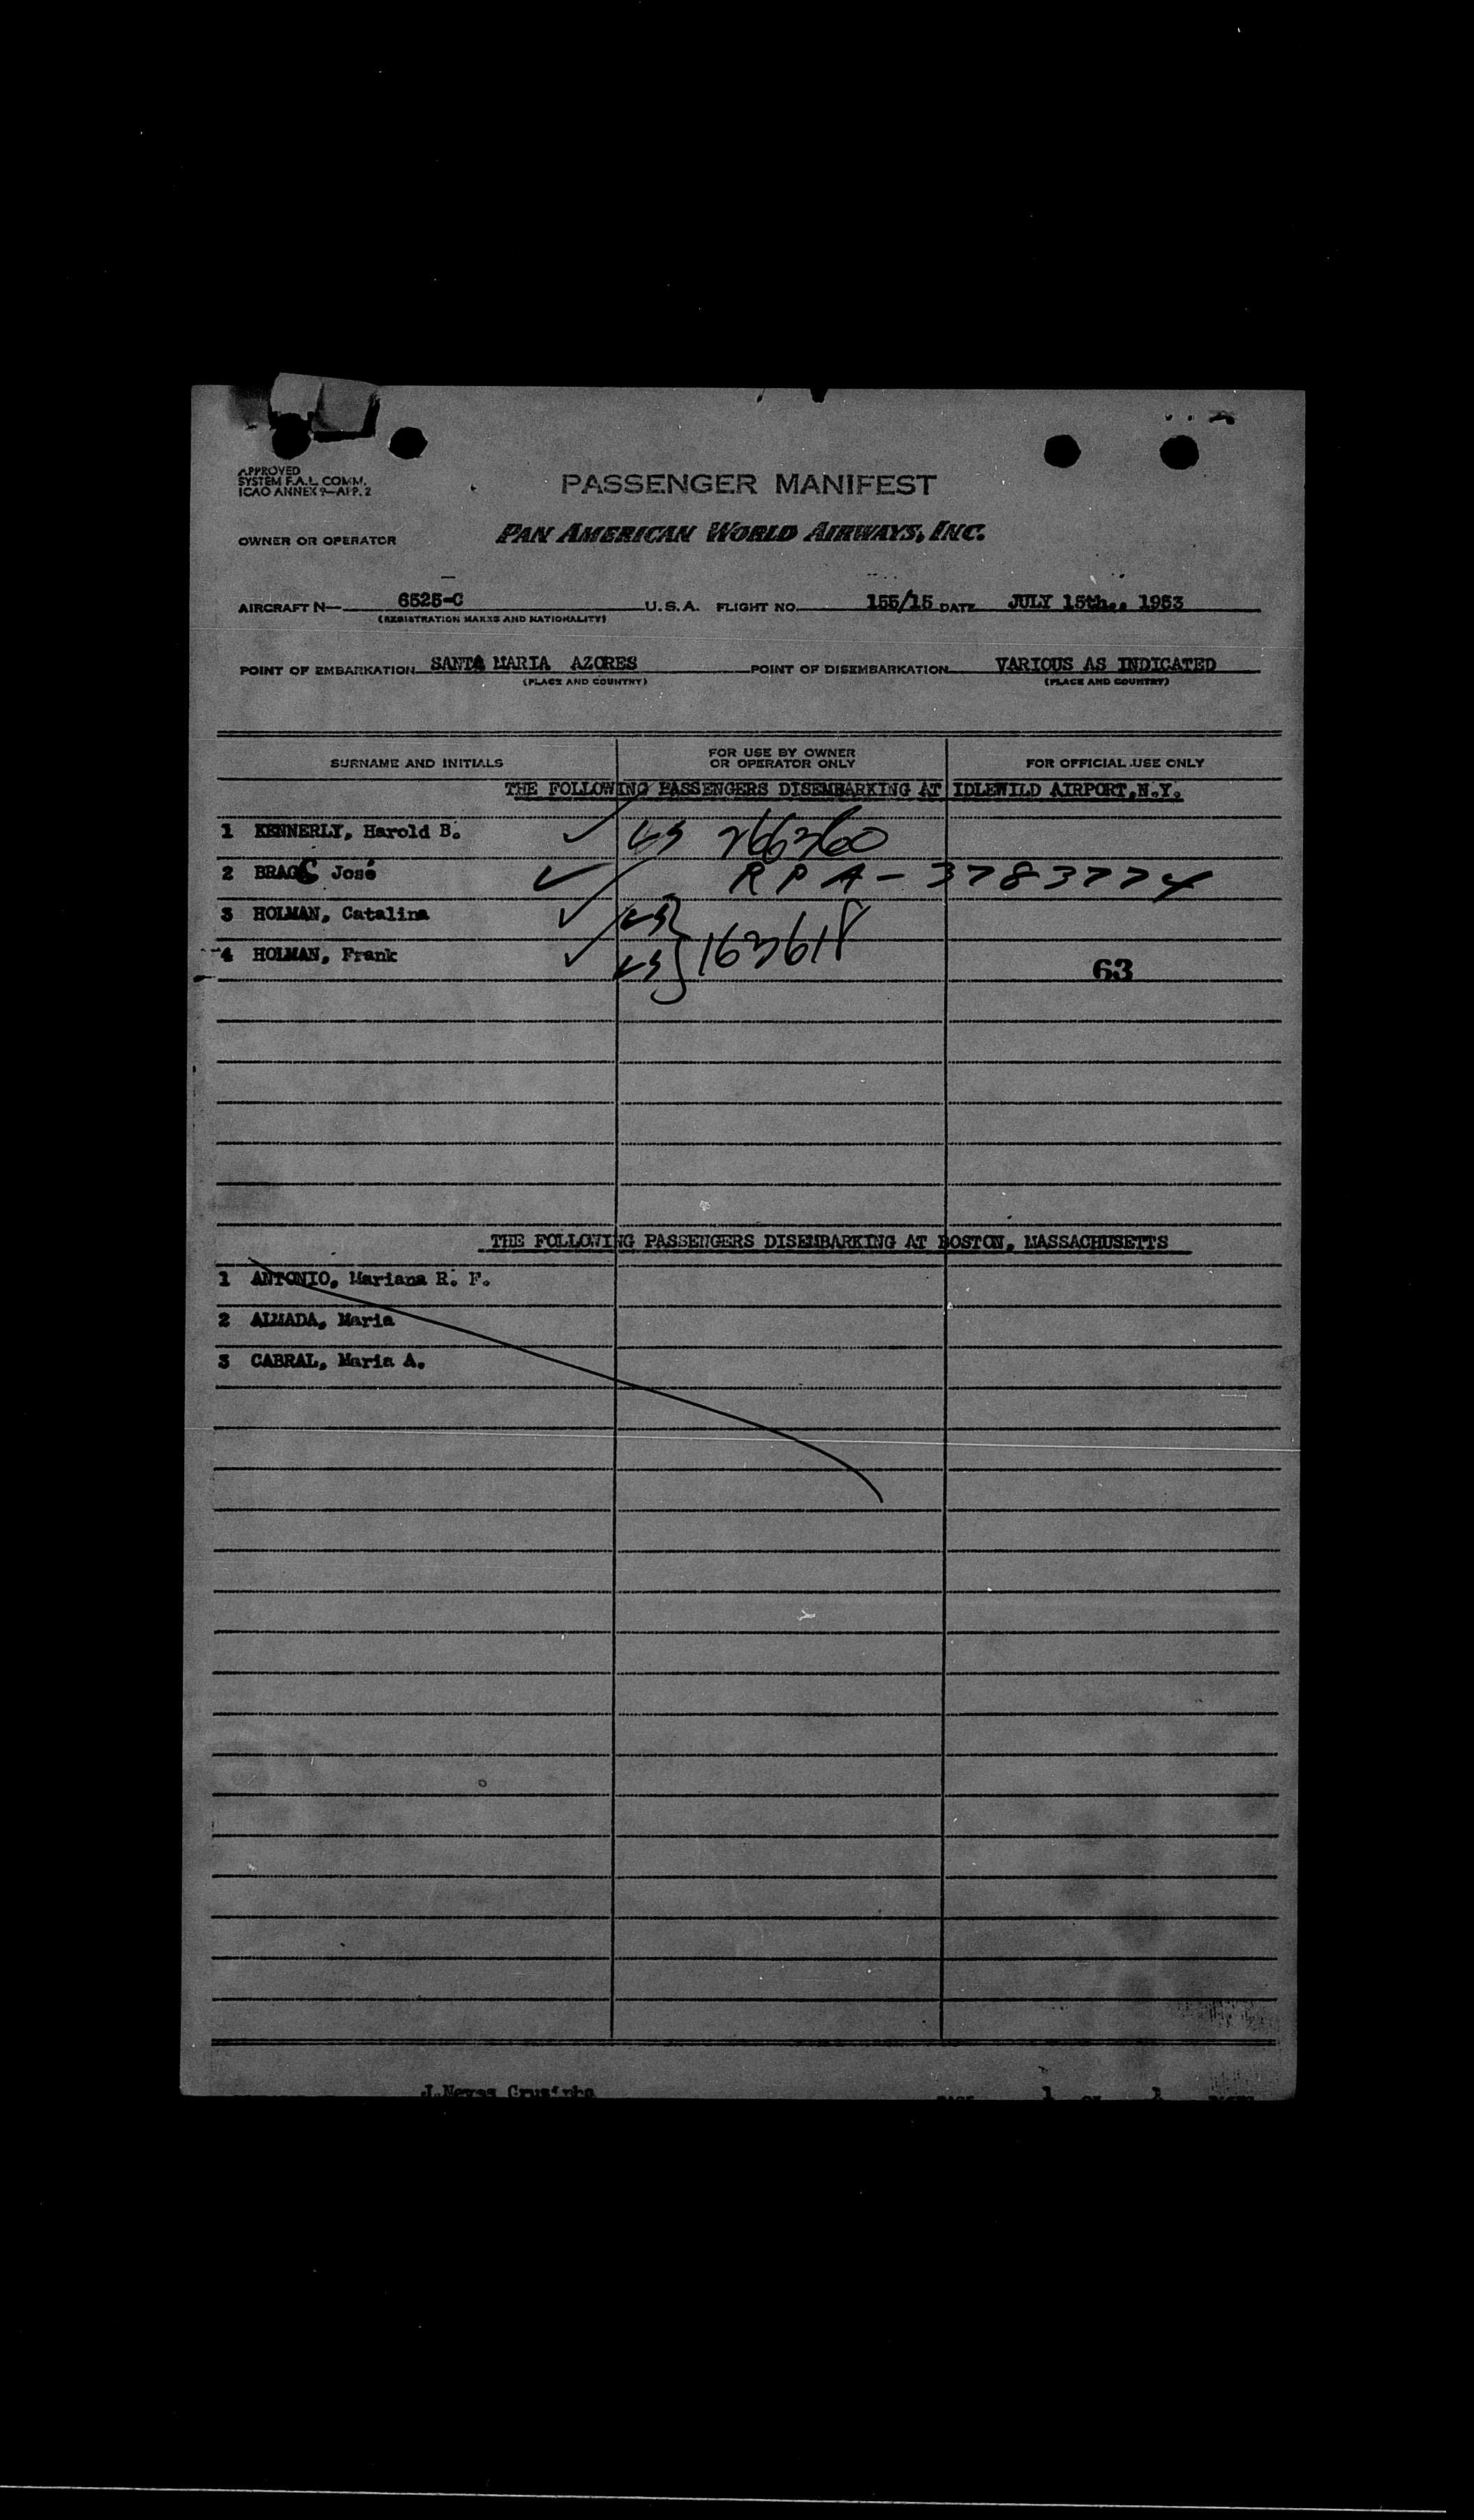 APPROVED
SYSTEM F.A.L. COMM.
ICAO ANNEX 9—APP. 2
PASSENGER MANIFEST
OWNER OR OPERATOR PAN AMERICAN WORLD AIRWAYS, INC.
AIRCRAFT N— 6525-C U.S.A. FLIGHT NO. 155/15 DATE JULY 15th., 1953
(REGISTRATION MARKS AND NATIONALITY)
POINT OF EMBARKATION SANTA MARIA AZORES POINT OF DISEMBARKATION VARIOUS AS INDICATED
(PLACE AND COUNTRY) (PLACE AND COUNTRY)
SURNAME AND INITIALS FOR USE BY OWNER OR OPERATOR ONLY FOR OFFICIAL USE ONLY
THE FOLLOWING PASSENGERS DISEMBARKING AT IDLEWILD AIRPORT, N.Y.
1 KENNERLY, Harold B. ✓ US 266360
2 BRAGC José ✓ RPA-3783774
3 HOLMAN, Catalina ✓ US
4 HOLMAN, Frank ✓ US } 163618
63
THE FOLLOWING PASSENGERS DISEMBARKING AT BOSTON, MASSACHUSETTS
1 ANTONIO, Mariana R. F.
2 ALMADA, Maria
3 CABRAL, Maria A.
J.Neves